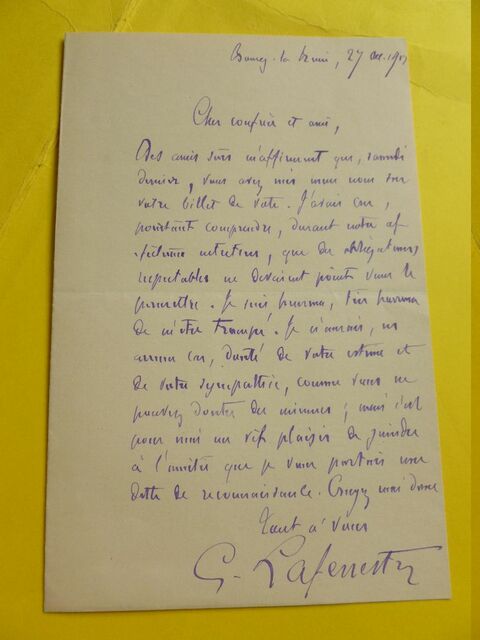 Bourg-la-Reine, 27 Dec. 190
Cher confrère et ami,
Des amis sûrs m'affirment que, samedi
dernier, vous avez mis mon nom sur
votre billet de vote. J'avais cru,
pourtant comprendre, durant notre af-
fectueux entretien, que des obligations
respectables ne devaient point vous le
permettre. Je suis heureux, très heureux
de m'être trompé. Je n'aurais, en
aucun cas, douté de votre estime et
de votre sympathie, comme vous ne
pouvez douter des miennes ; mais c'est
pour moi un vif plaisir de joindre
à l'amitié que je vous portais une
dette de reconnaissance. Croyez moi donc
Tout à vous
G. Lafenestre